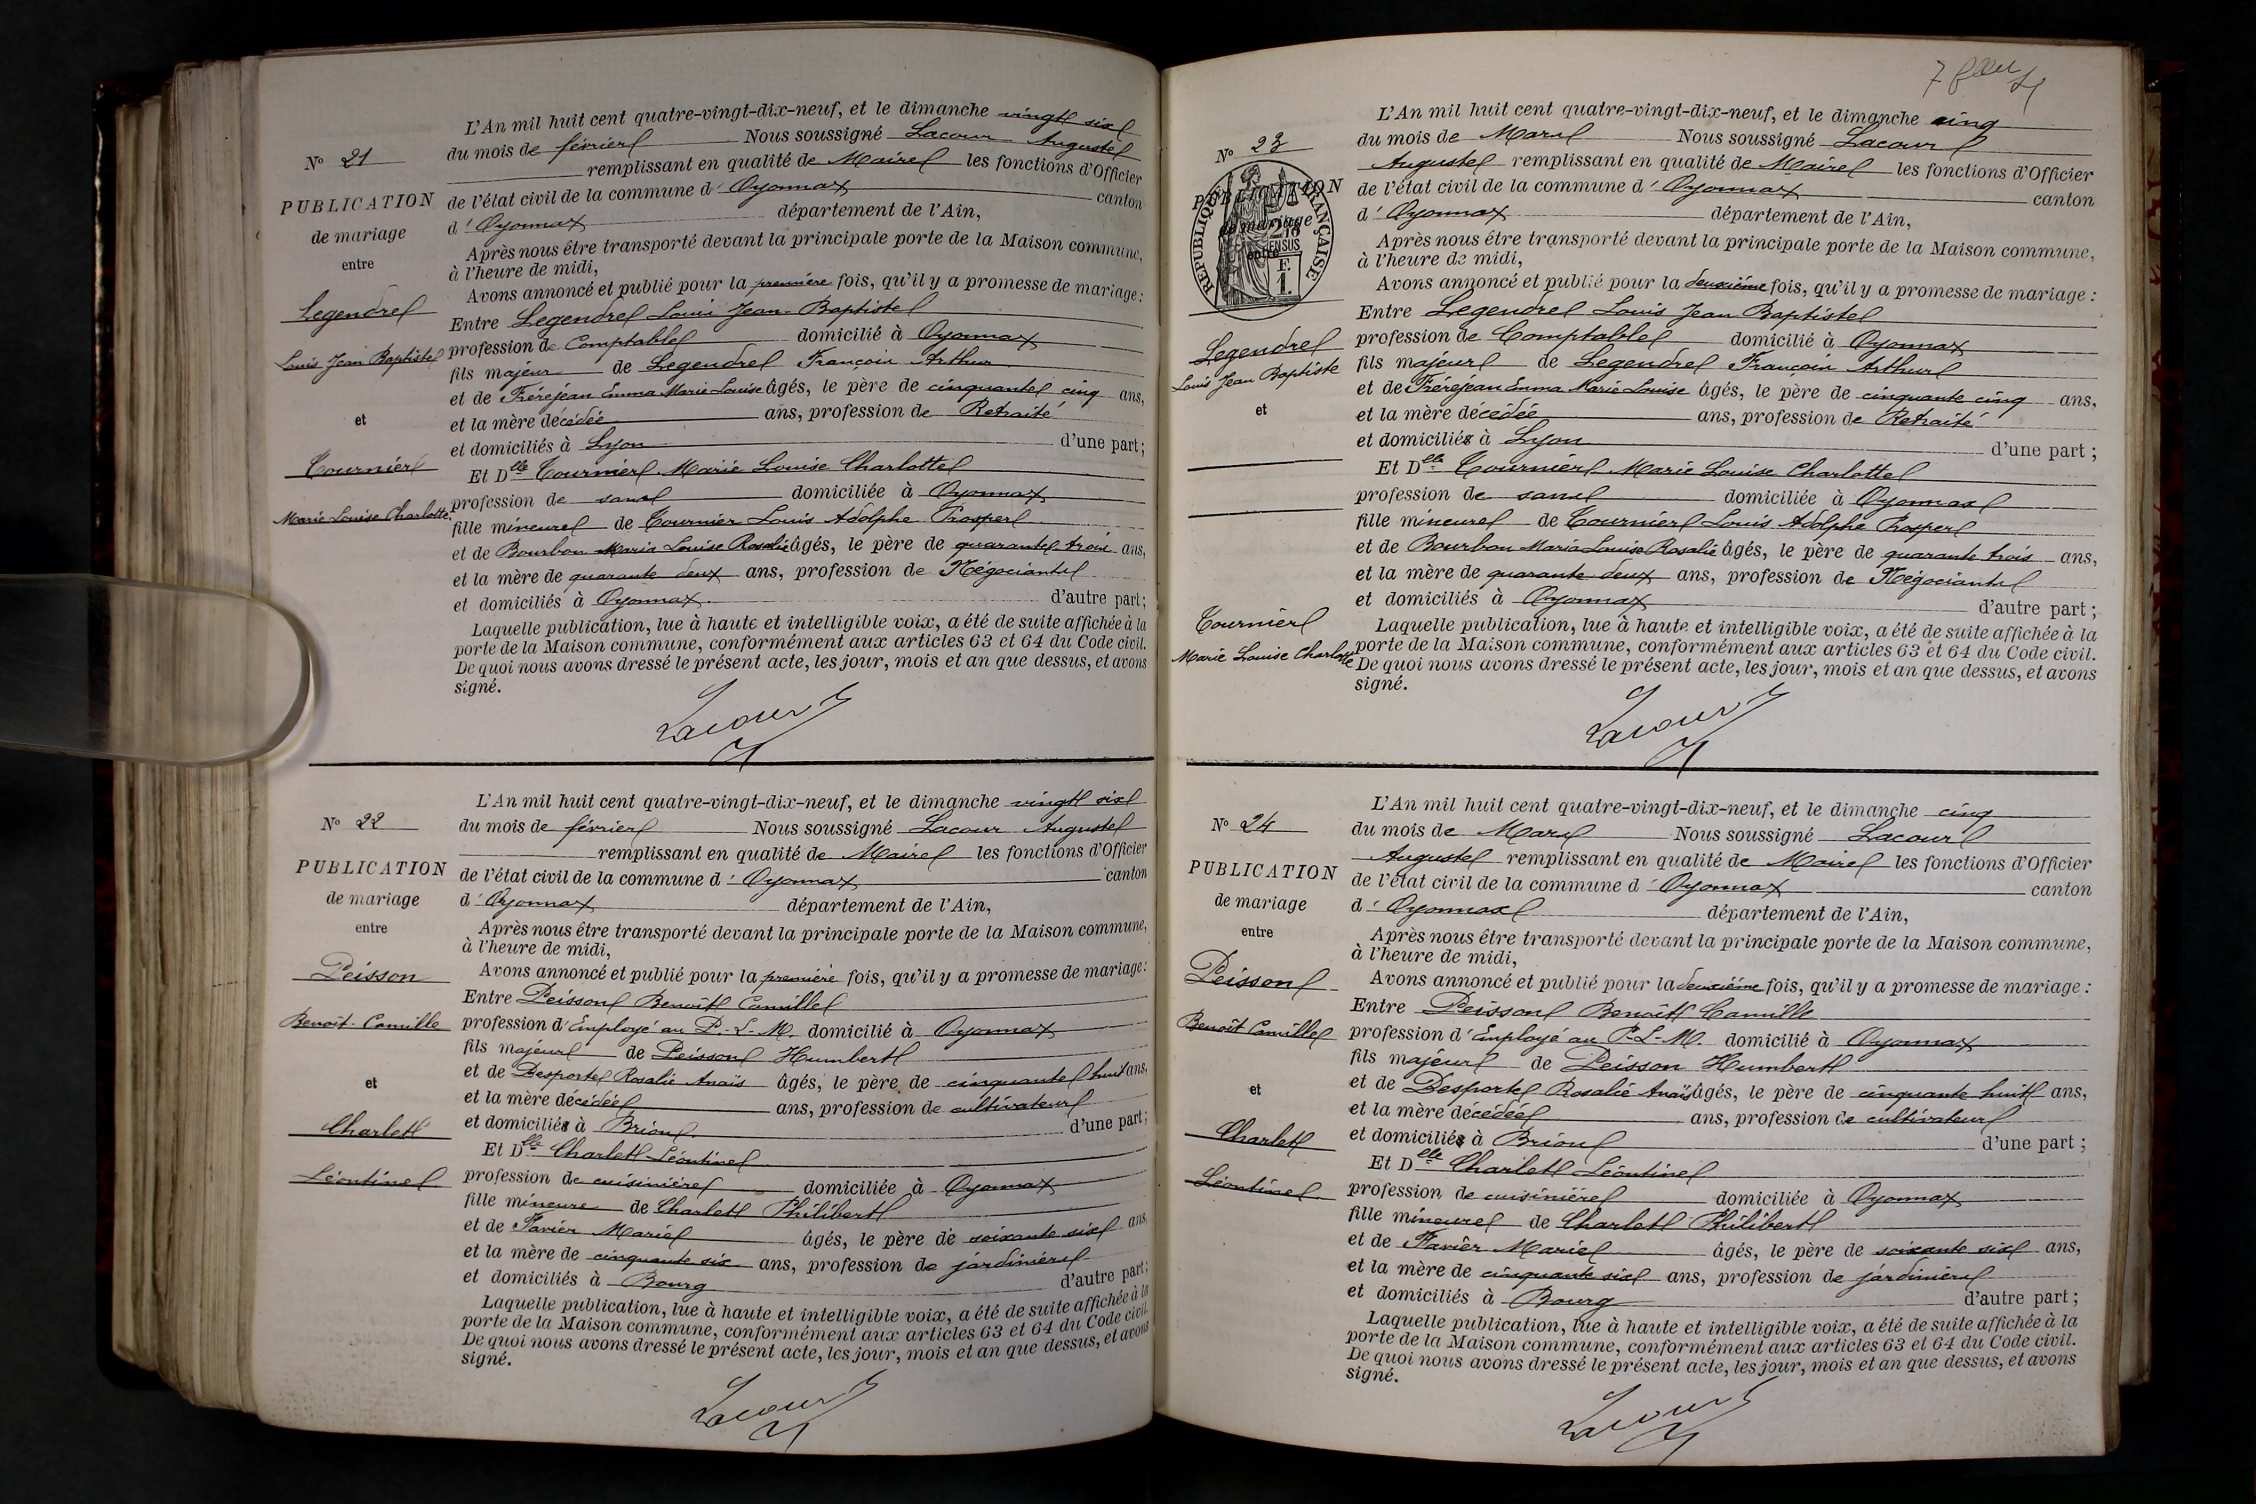 N° 21
PUBLICATION
de mariage
entre
Legendre
Louis Jean Baptiste
et
Tournier
Marie Louise Charlotte
L'An mil huit cent quatre-vingt-dix-neuf, et le dimanche vingt six
du mois de février Nous soussigné Lacour Auguste
remplissant en qualité de Maire les fonctions d'Officier
de l'état civil de la commune d' Oyonnax canton
d' Oyonnax département de l'Ain,
Après nous être transporté devant la principale porte de la Maison commune,
à l'heure de midi,
Avons annoncé et publié pour la première fois, qu'il y a promesse de mariage :
Entre Legendre Louis Jean-Baptiste
profession de Comptable domicilié à Oyonnax
fils majeur de Legendre François Arthur
et de Fréréjean Emma Marie Louise âgés, le père de cinquante cinq ans,
et la mère décédée ans, profession de Retraité
et domiciliés à Lyon d'une part ;
Et Dlle Tournier Marie Louise Charlotte
profession de sans domiciliée à Oyonnax
fille mineure de Tournier Louis Adolphe Prosper
et de Bourbon Maria Louise Rosalie âgés, le père de quarante trois ans,
et la mère de quarante deux ans, profession de Négociants
et domiciliés à Oyonnax d'autre part ;
Laquelle publication, lue à haute et intelligible voix, a été de suite affichée à la
porte de la Maison commune, conformément aux articles 63 et 64 du Code civil.
De quoi nous avons dressé le présent acte, les jour, mois et an que dessus, et avons
signé.
Lacour
N° 22
PUBLICATION
de mariage
entre
Peisson
Benoît-Camille
et
Charlet
Léontine
L'An mil huit cent quatre-vingt-dix-neuf, et le dimanche vingt six
du mois de février Nous soussigné Lacour Auguste
remplissant en qualité de Maire les fonctions d'Officier
de l'état civil de la commune d' Oyonnax canton
d' Oyonnax département de l'Ain,
Après nous être transporté devant la principale porte de la Maison commune,
à l'heure de midi,
Avons annoncé et publié pour la première fois, qu'il y a promesse de mariage :
Entre Peisson Benoît Camille
profession d' Employé au P.-L.-M. domicilié à Oyonnax
fils majeur de Peisson Humbert
et de Desporte Rosalie Anaïs âgés, le père de cinquante huit ans,
et la mère décédée ans, profession de cultivateur
et domiciliés à Brion d'une part ;
Et Dlle Charlet Léontine
profession de cuisinière domiciliée à Oyonnax
fille mineure de Charlet Philibert
et de Favier Marie âgés, le père de soixante six ans,
et la mère de cinquante six ans, profession de jardiniers
et domiciliés à Bourg d'autre part ;
Laquelle publication, lue à haute et intelligible voix, a été de suite affichée à la
porte de la Maison commune, conformément aux articles 63 et 64 du Code civil.
De quoi nous avons dressé le présent acte, les jour, mois et an que dessus, et avons
signé.
Lacour
N° 23
PUBLICATION
de mariage
entre
RÉPUBLIQUE FRANÇAISE
EN SUS
Legendre
Louis Jean Baptiste
et
Tournier
Marie Louise Charlotte
L'An mil huit cent quatre-vingt-dix-neuf, et le dimanche cinq
du mois de Mars Nous soussigné Lacour
Auguste remplissant en qualité de Maire les fonctions d'Officier
de l'état civil de la commune d' Oyonnax canton
d' Oyonnax département de l'Ain,
Après nous être transporté devant la principale porte de la Maison commune,
à l'heure de midi,
Avons annoncé et publié pour la deuxième fois, qu'il y a promesse de mariage :
Entre Legendre Louis Jean Baptiste
profession de Comptable domicilié à Oyonnax
fils majeur de Legendre François Arthur
et de Fréréjean Emma Marie Louise âgés, le père de cinquante cinq ans,
et la mère décédée ans, profession de Retraité
et domiciliés à Lyon d'une part ;
Et Dlle Tournier Marie Louise Charlotte
profession de sans domiciliée à Oyonnax
fille mineure de Tournier Louis Adolphe Prosper
et de Bourbon Maria Louise Rosalie âgés, le père de quarante trois ans,
et la mère de quarante deux ans, profession de Négociants
et domiciliés à Oyonnax d'autre part ;
Laquelle publication, lue à haute et intelligible voix, a été de suite affichée à la
porte de la Maison commune, conformément aux articles 63 et 64 du Code civil.
De quoi nous avons dressé le présent acte, les jour, mois et an que dessus, et avons
signé.
Lacour
N° 24
PUBLICATION
de mariage
entre
Peisson
Benoît Camille
et
Charlet
Léontine
L'An mil huit cent quatre-vingt-dix-neuf, et le dimanche cinq
du mois de Mars Nous soussigné Lacour
Auguste remplissant en qualité de Maire les fonctions d'Officier
de l'état civil de la commune d' Oyonnax canton
d' Oyonnax département de l'Ain,
Après nous être transporté devant la principale porte de la Maison commune,
à l'heure de midi,
Avons annoncé et publié pour la deuxième fois, qu'il y a promesse de mariage :
Entre Peisson Benoît Camille
profession d' Employé au P.-L.-M. domicilié à Oyonnax
fils majeur de Peisson Humbert
et de Desporte Rosalie Anaïs âgés, le père de cinquante huit ans,
et la mère décédée ans, profession de cultivateur
et domiciliés à Brion d'une part ;
Et Dlle Charlet Léontine
profession de cuisinière domiciliée à Oyonnax
fille mineure de Charlet Philibert
et de Favier Marie âgés, le père de soixante six ans,
et la mère de cinquante six ans, profession de jardiniers
et domiciliés à Bourg d'autre part ;
Laquelle publication, lue à haute et intelligible voix, a été de suite affichée à la
porte de la Maison commune, conformément aux articles 63 et 64 du Code civil.
De quoi nous avons dressé le présent acte, les jour, mois et an que dessus, et avons
signé.
Lacour